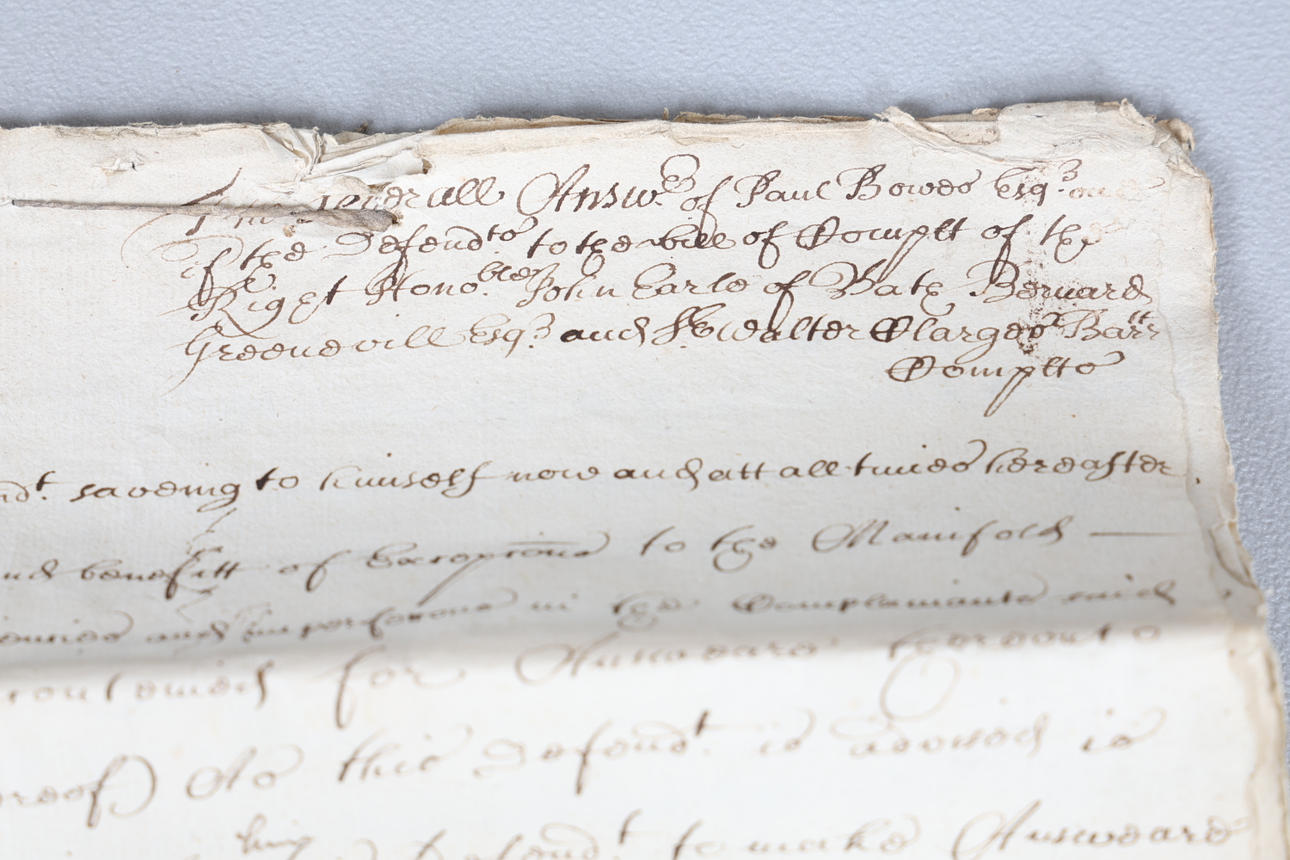 The severall Answ:r of Paul Bowes Esq:r one
of the Defend:ts to the bill of Complt of the
Right Hono:ble John Earle of Bath Bernard
Greenevill Esq:r and Sr Walter Clarges Bartt
Complts
nd:t saveing to himself now and att all times hereafter
nd benefitt of Excepcons to the Manifold
and imperfeccons in the Complainants said
conteined for Answeare thereunto
reof) As this Defend:t is advised is
Defend:t to make Answeare